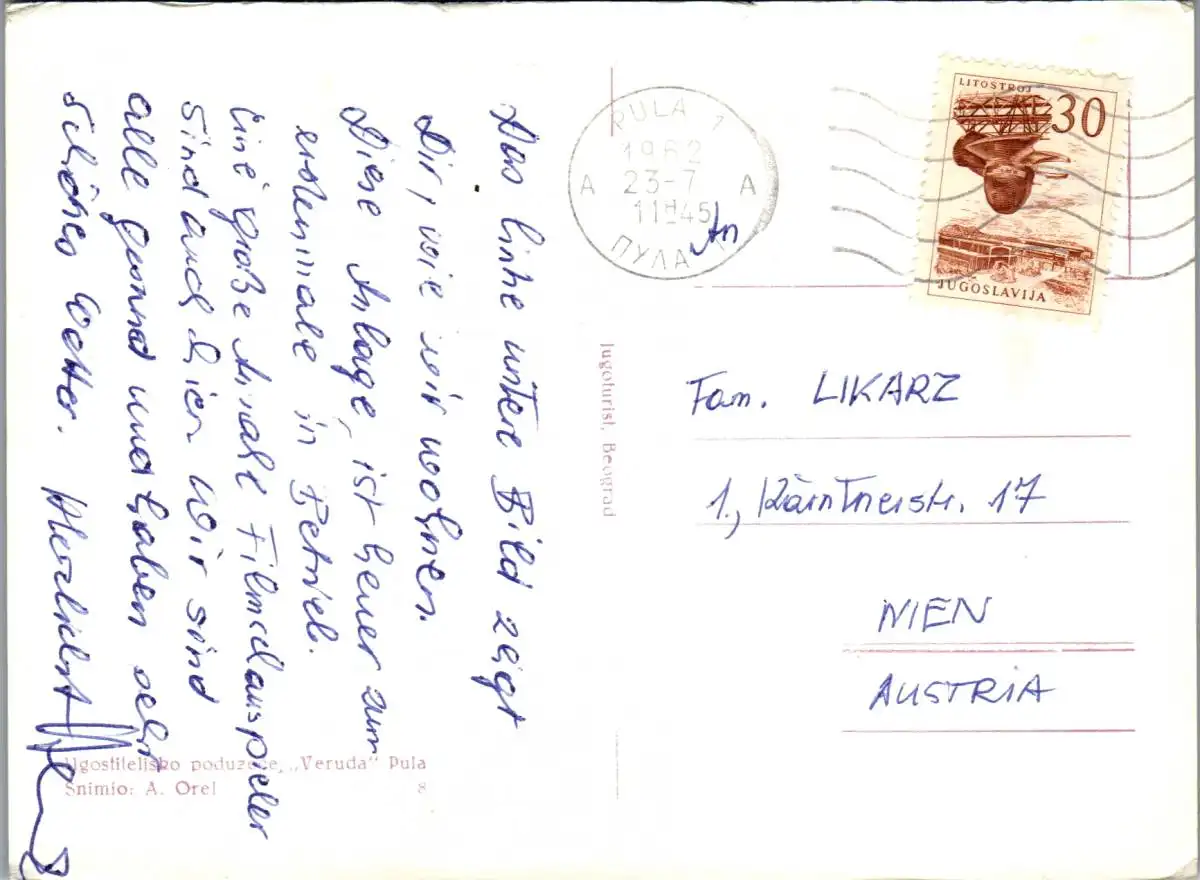 Das linke untere Bild zeigt
Dir, wie wir wohnen.
Diese Anlage, ist heuer zum
erstenmale in Betrieb.
Eine große Anzahl Filmschauspieler
sind auch hier. Wir sind
alle gesund und haben sehr
schönes Wetter.
Herzlichst
Ugostiteljsko poduzeće, „Veruda“ Pula
Snimio: A. Orel 8
Jugoturist, Beograd
PULA 1
1962
A 23-7 A
11H45
ПУЛА
LITOSTROJ
30
JUGOSLAVIJA
An
Fam. LIKARZ
1., Kärntnerstr. 17
WIEN
AUSTRIA